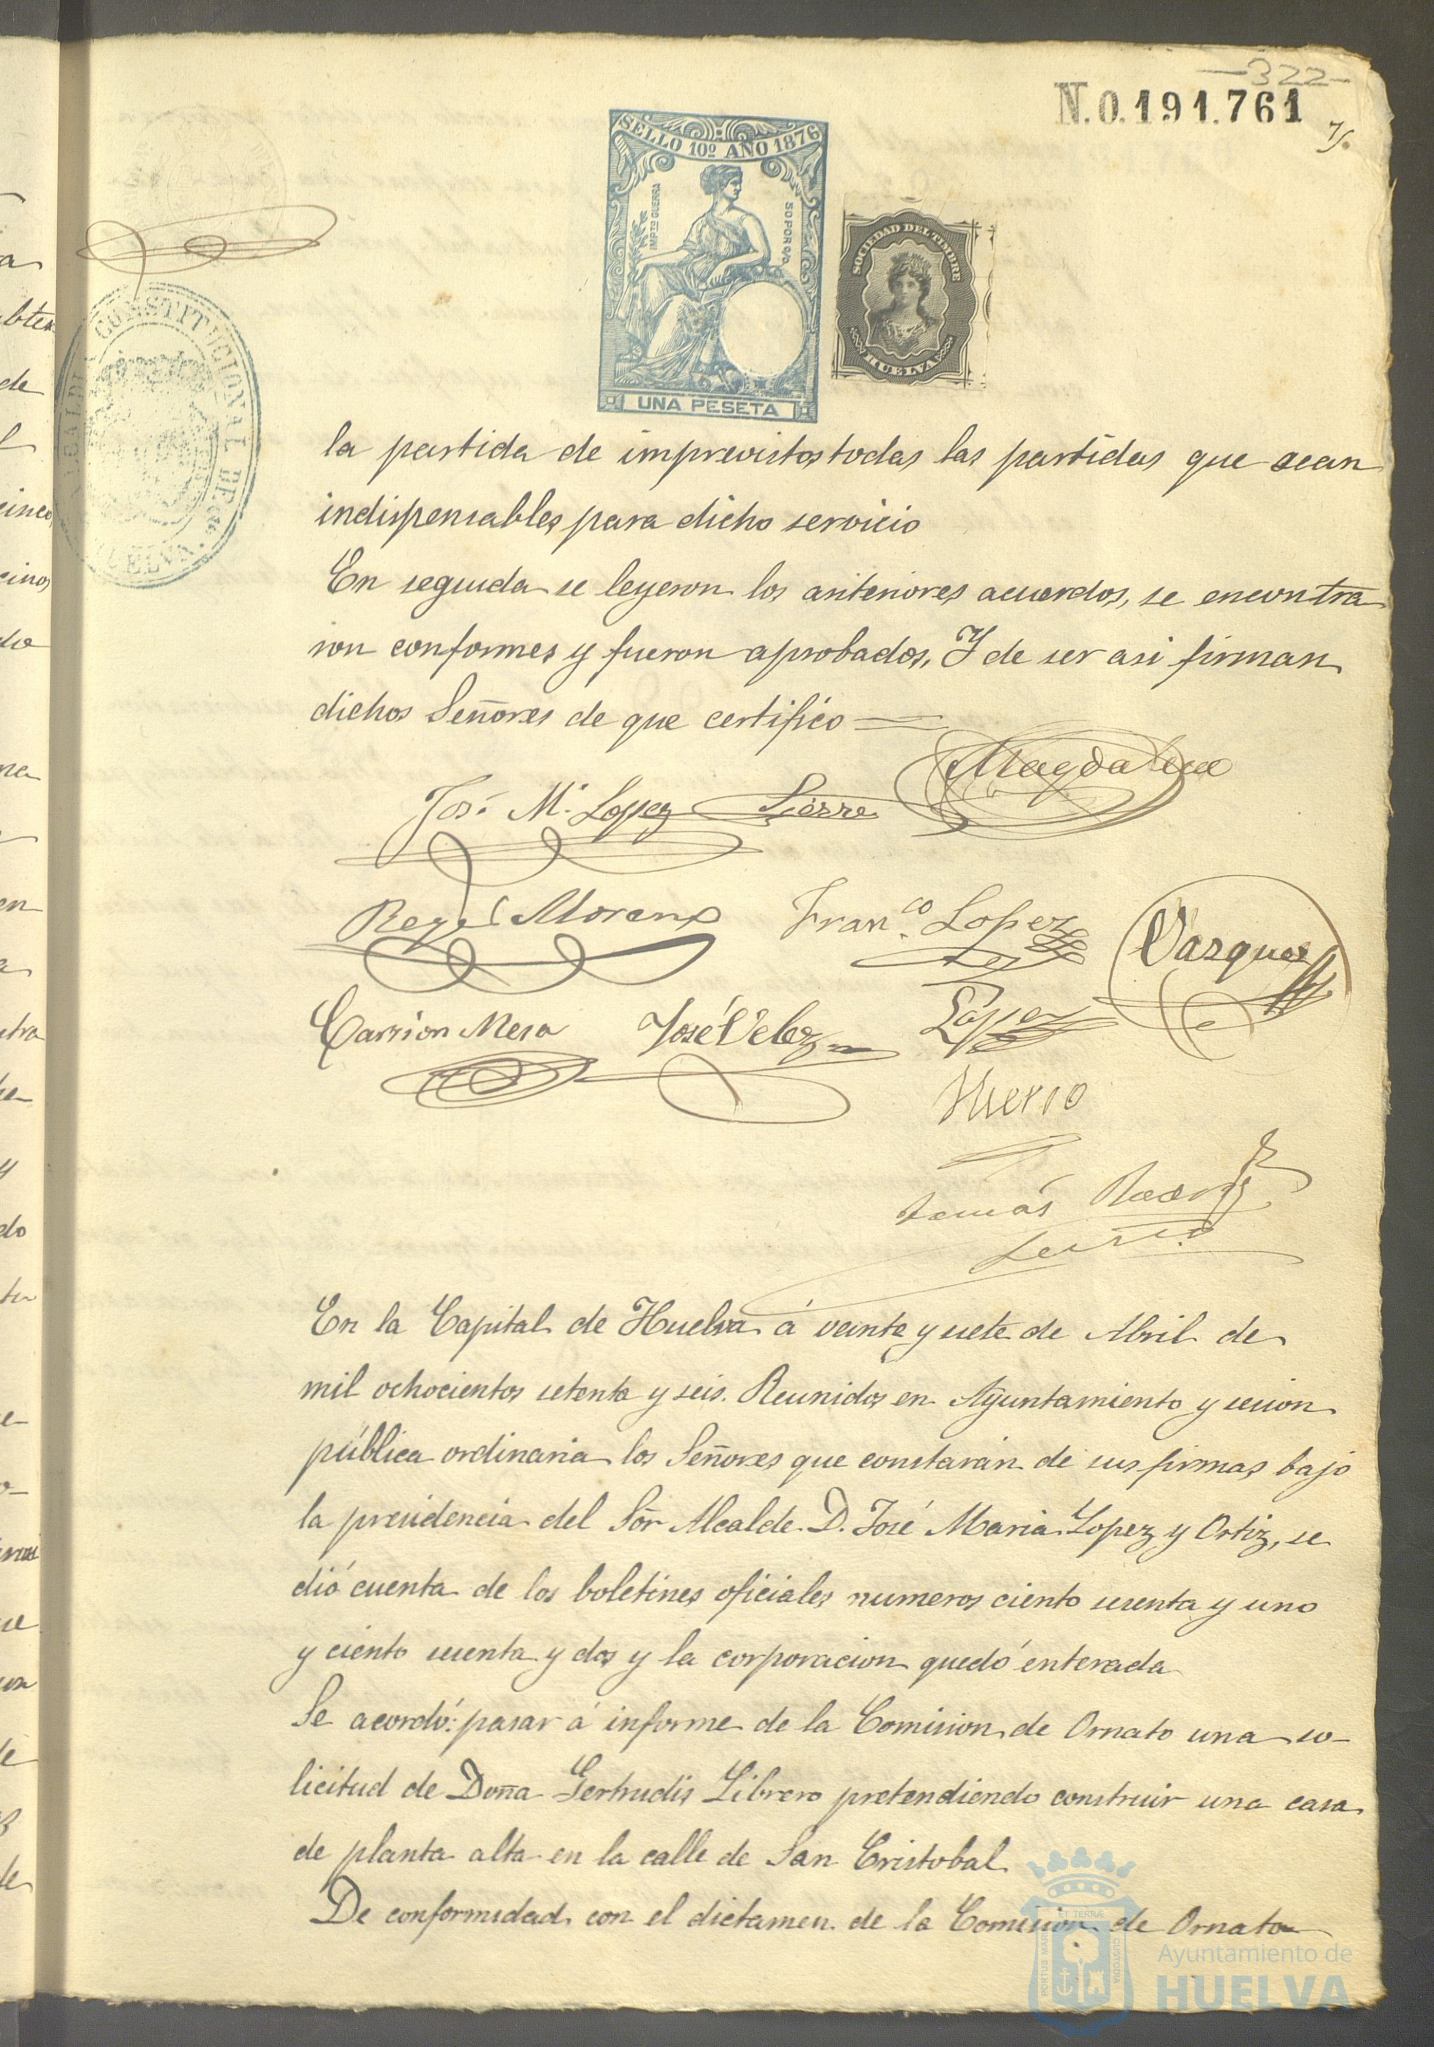 -322-
N.0.191.761
SELLO 10º AÑO 1876
IMPTO GUERRA
50 POR 0/0.
UNA PESETA
SOCIEDAD DEL TIMBRE
HUELVA
ALCALDIA CONSTITUCIONAL DE
HUELVA.
la partida de imprevistos todas las partidas que sean
indispensables para dicho servicio
En seguida se leyeron los anteriores acuerdos, se encontra
ron conformes y fueron aprobados. Y de ser asi firman
dichos Señores de que certifico
Magdalena
José Mª Lopez Sierra
Moreno
Franco. Lopez
Vazquez
Carrion Mesa
José Velez
López
Hierro
Tomás
En la Capital de Huelva á veinte y siete de Abril de
mil ochocientos setenta y seis. Reunidos en Ayuntamiento y sesion
pública ordinaria los Señores que constarán de sus firmas bajo
la presidencia del Sõr Alcalde D. José Maria Lopez y Ortiz, se
dió cuenta de los boletines oficiales numeros ciento sesenta y uno
y ciento sesenta y dos y la corporacion quedó enterada
Se acordó: pasar á informe de la Comision de Ornato una so-
licitud de Doña Gertrudis Librero pretendiendo construir una casa
de planta alta en la calle de San Cristobal
De conformidad con el dictamen de la Comision de Ornato
PORTUS MARIS ET TERRÆ CUSTODIA
Ayuntamiento de
HUELVA